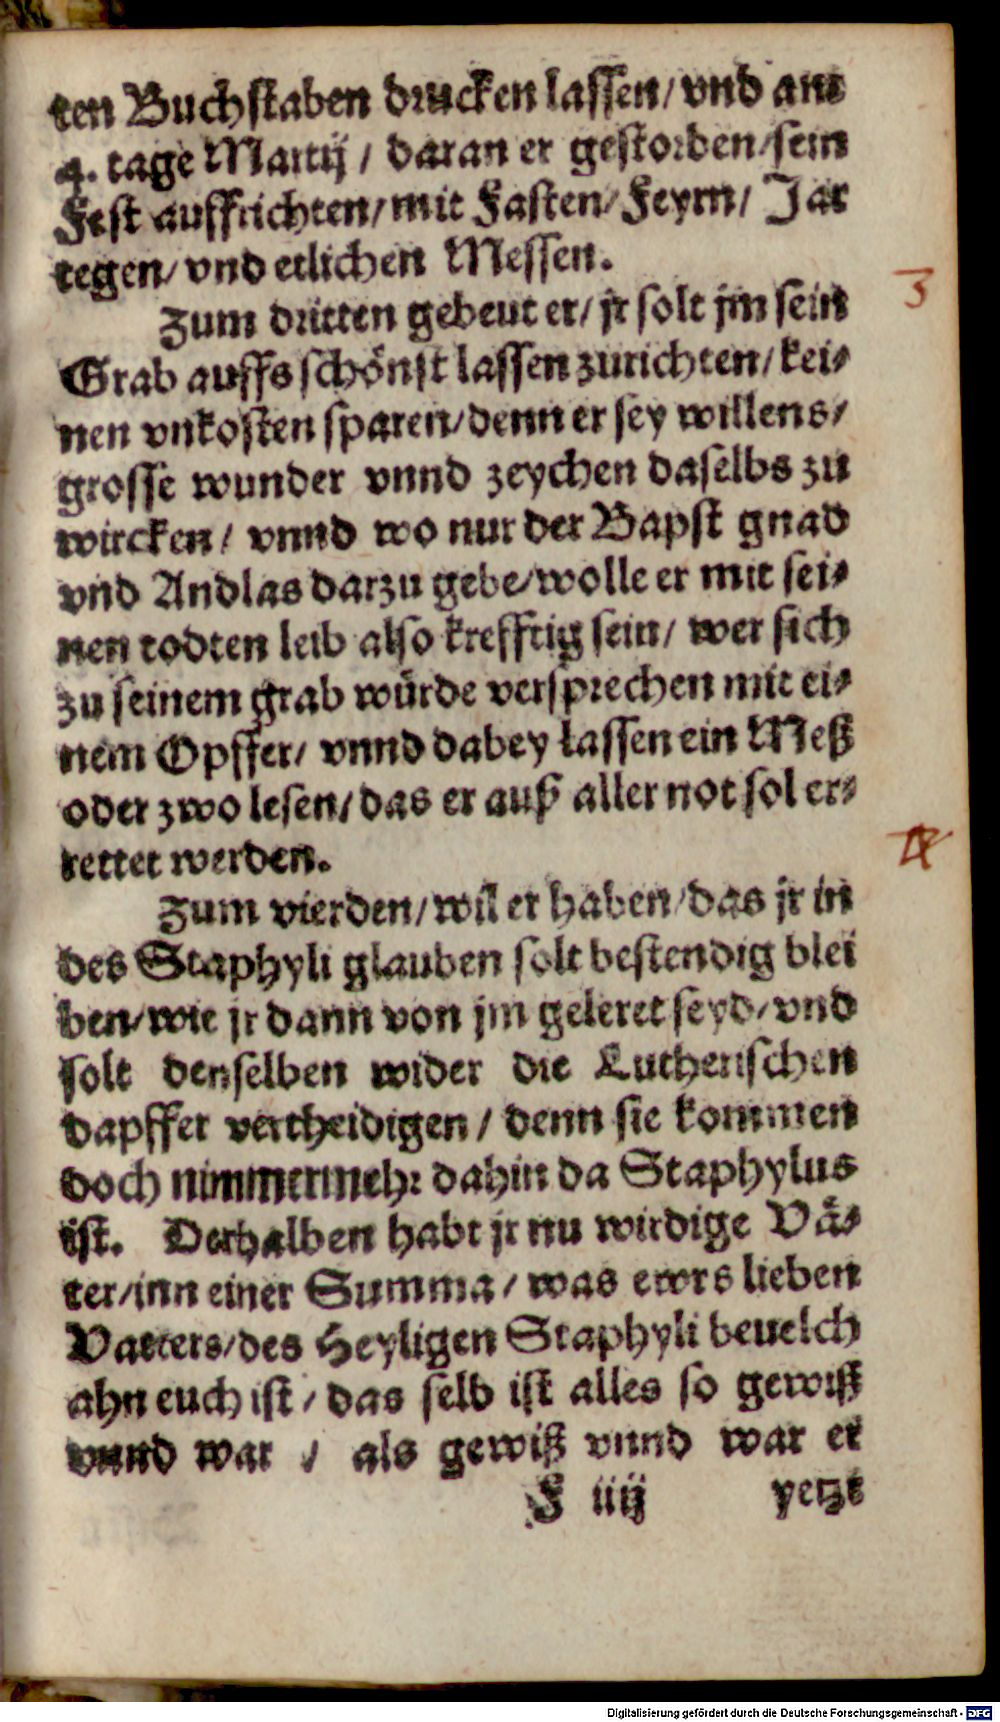 ten Buchstaben drucken lassen/ vnd am
4. tage Martij / daran er gestorben/ sein
Fest auffrichten/ mit Fasten/ Feyrn/ Jar
tegen/ vnd etlichen Messen.
Zum dritten gebeut er/ jr solt jm sein
3
Grab auffs schönst lassen zurichten/ kei-
nen vnkosten sparen/ denn er sey willens/
grosse wunder vnnd zeychen daselbs zu
wircken/ vnnd wo nur der Bapst gnad
vnd Andlas darzu gebe/ wolle er mit sei-
nen todten leib also krefftig sein/ wer sich
zu seinem grab würde versprechen mit ei-
nem Opffer/ vnnd dabey lassen ein Meß
oder zwo lesen/ das er auß aller not sol er-
rettet werden.
Zum vierden/ wil er haben/ das jr in
des Staphyli glauben solt bestendig blei
ben/ wie jr dann von jm geleret seyd/ vnd
solt denselben wider die Lutherischen
dapffer vertheidigen / denn sie kommen
doch nimmermehr dahin da Staphylus
ist. Derhalben habt jr nu wirdige Vä-
ter/ inn einer Summa/ was ewrs lieben
Vatters/ des Heyligen Staphyli beuelch
ahn euch ist/ das selb ist alles so gewiß
vnnd war / als gewiß vnnd war er
F iiij yetzt
Digitalisierung gefördert durch die Deutsche Forschungsgemeinschaft - DFG